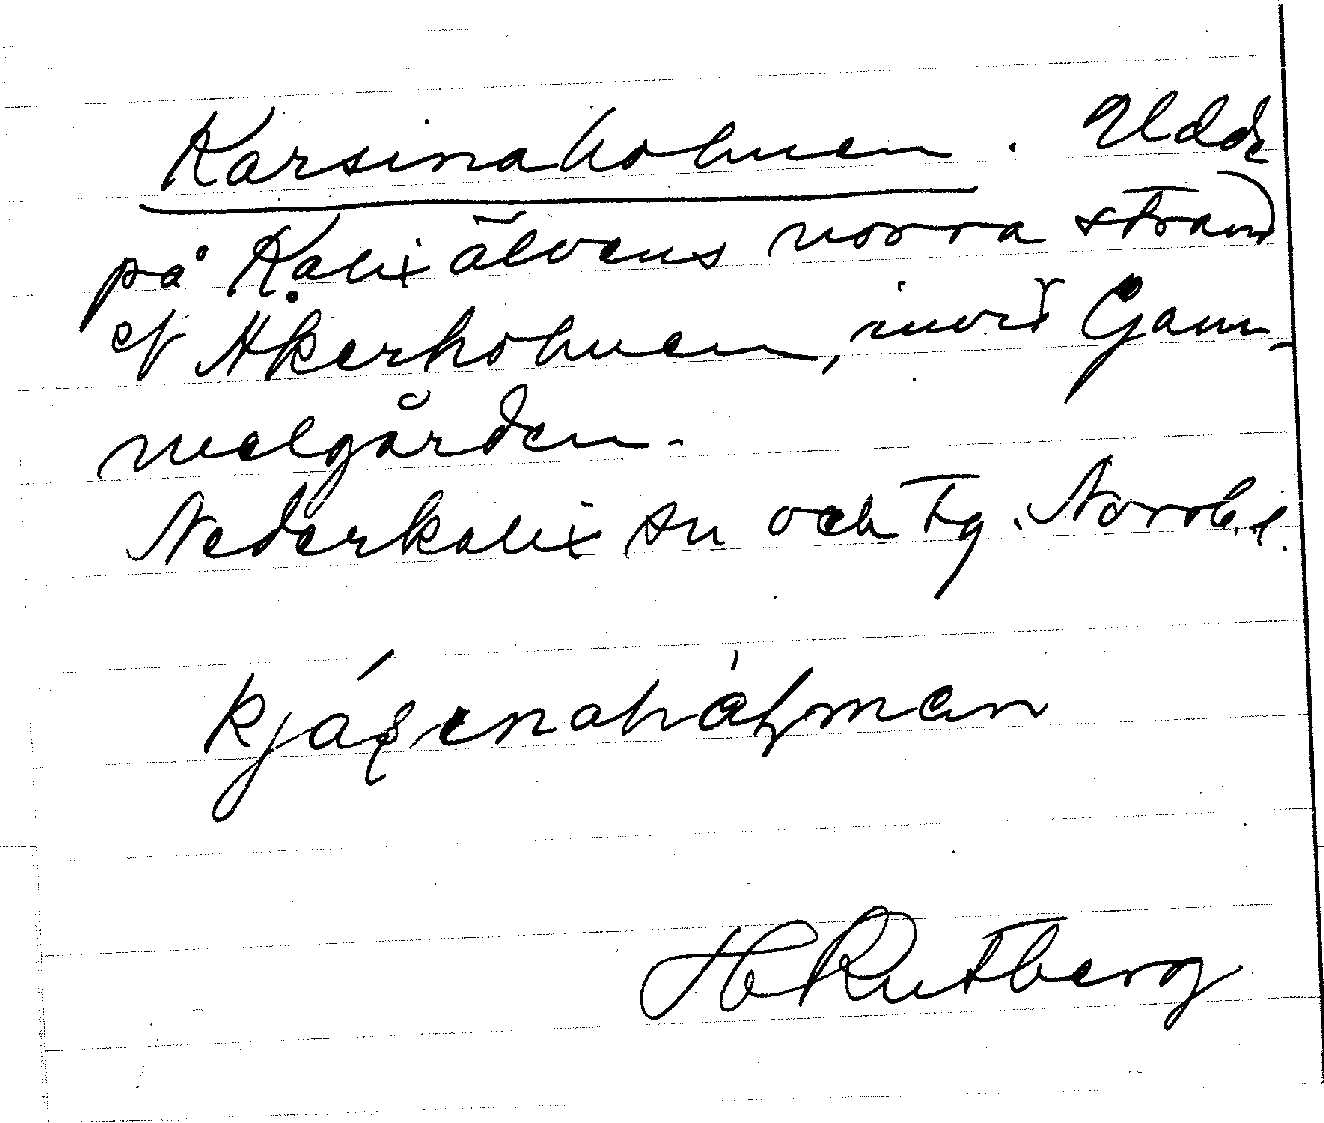 Karsinaholmen. Udde
på Kalixälvens norra strand
N Åkerholmen, invid Gam-
melgården.
Nederkalix sn och tg. Norrb. l.
kjáʂenahàɭman
H Rutberg